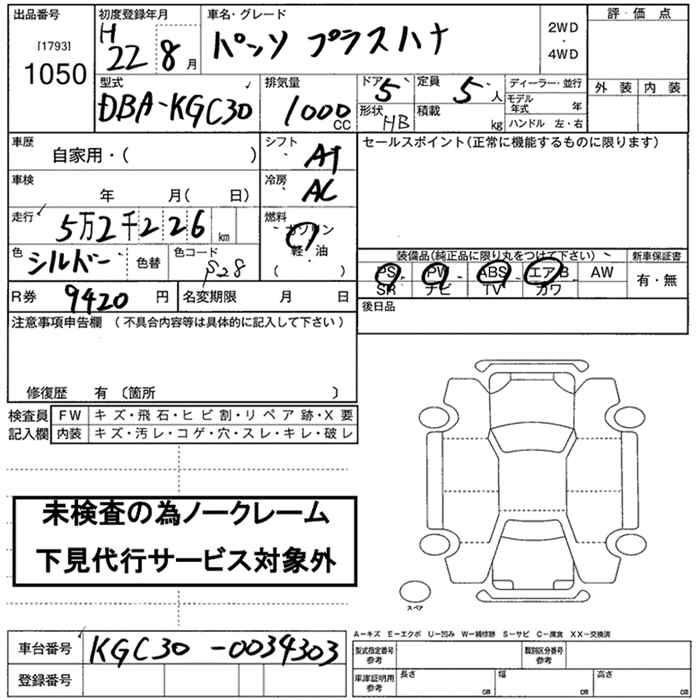 出品番号 初度登録年月 車名・グレード 評・価 点
[1793] H 2WD
1050 22 8 月 パッソ プラスハナ ・
4WD
外装 内装
型式 排気量 ドア 定員 ディーラー・並行
DBA-KGC30 1000 CC 5 5 人 モデル年式 年
形状 HB 積載 kg ハンドル 左・右
車歴 シフト セールスポイント(正常に機能するものに限ります)
自家用・( ) AT
車検 冷房
年 月( 日) AC
走行 燃料
5万2千226 km ガソリン
色 色コード 軽・油
シルバー 色替 S28 ( )
装備品(純正品に限り丸をつけて下さい) 新車保証書
PS PW ABS エアB AW 有・無
SR ナビ TV カワ
R券 9420 円 名変期限 月 日 後日品
注意事項申告欄 (不具合内容等は具体的に記入して下さい)
修復歴 有 〔箇所 〕
検査員 FW キズ・飛石・ヒビ割・リペア跡・X要
記入欄 内装 キズ・汚レ・コゲ・穴・スレ・キレ・破レ
未検査の為ノークレーム
下見代行サービス対象外
スペア
A-キズ E-エクボ U-凹み W-補修跡 S-サビ C-腐食 XX-交換済
車台番号 KGC30-0034303 型式指定番号 参考 類別区分番号 参考
登録番号 車庫証明用 参考 長さ cm 幅 cm 高さ cm